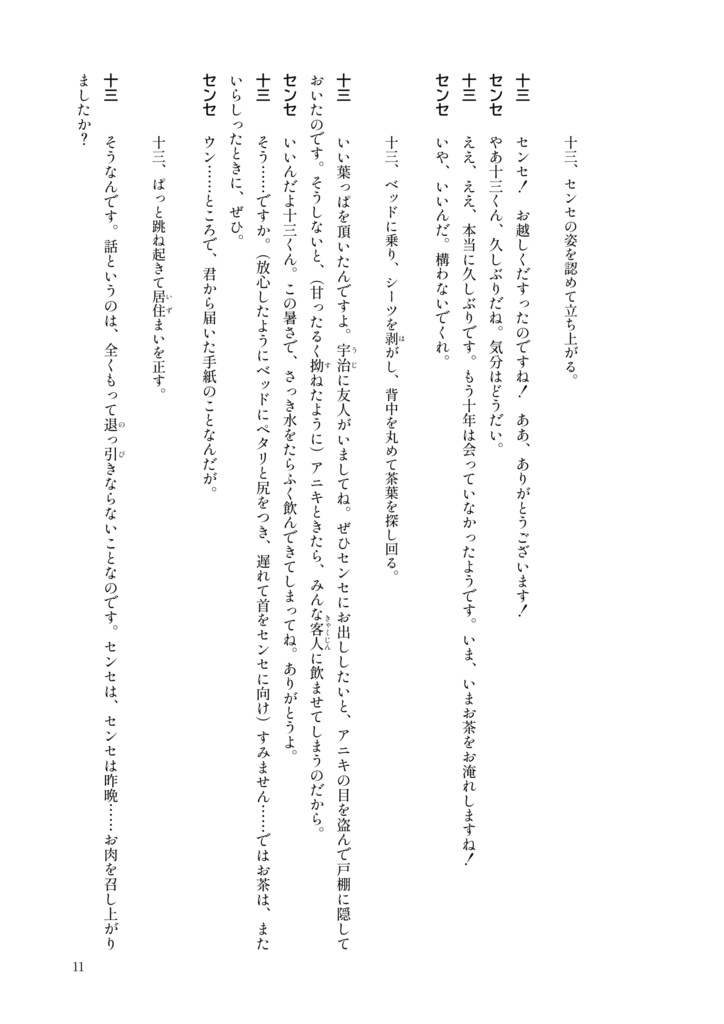 十三、センセの姿を認めて立ち上がる。
十三　センセ！　お越しくだすったのですね！　ああ、ありがとうございます！
センセ　やあ十三くん、久しぶりだね。気分はどうだい。
十三　ええ、ええ、本当に久しぶりです。もう十年は会っていなかったようです。いま、いまお茶をお淹れしますね！
センセ　いや、いいんだ。構わないでくれ。
十三、ベッドに乗り、シーツを剥がし、背中を丸めて茶葉を探し回る。
十三　いい葉っぱを頂いたんですよ。宇治に友人がいましてね。ぜひセンセにお出ししたいと、アニキの目を盗んで戸棚に隠して
おいたのです。そうしないと、（甘ったるく拗ねたように）アニキときたら、みんな客人に飲ませてしまうのだから。
センセ　いいんだよ十三くん。この暑さで、さっき水をたらふく飲んできてしまってね。ありがとうよ。
十三　そう……ですか。（放心したようにベッドにペタリと尻をつき、遅れて首をセンセに向け）すみません……ではお茶は、また
いらしったときに、ぜひ。
センセ　ウン……ところで、君から届いた手紙のことなんだが。
十三、ぱっと跳ね起きて居住まいを正す。
十三　そうなんです。話というのは、全くもって退っ引きならないことなのです。センセは、センセは昨晩……お肉を召し上がり
ましたか？
11